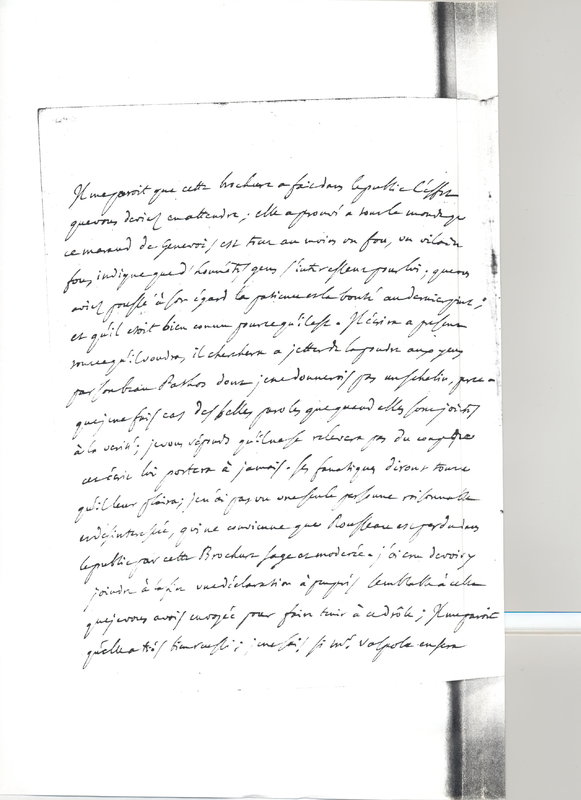 Il me paroit que cette brochure a fait dans le public l'effet
que vous deviez en attendre; elle a prouvé a tout le monde que
ce maraud de Genevois est tout au moins un fou, un vilain
fou, indigne que d'honnêtes gens s'interessent pour lui; que vous
aviez poussé à son égard la patience et la bonté au dernier point;
et qu'il etoit bien connu pour ce qu'il est. Il écrira a present
tout ce qu'il voudra, il cherchera a jetter de la poudre aux yeux
par son beau Pathos dont je ne donnerois pas un schelin, parce
que je ne fais cas des belles paroles que quand elles sont jointes
à la verité; je vous réponds qu'il ne se relevera pas du coup que
cet écrit lui portera à jamais. Ses fanatiques diront tout ce
qu'il leur plaira; je n'ai pas vu une seule personne raisonnable
et désinteressée, qui ne convienne que Rousseau est perdu dans
le public par cette Brochure sage et moderée. j'ai cru devoir y
joindre à la fin une déclaration a peu près semblable à celle
que je vous avois envoyée pour faire tenir à ce drôle; Il me paroit
qu'elle a très bien reussi; je ne sais si mr. Valpole en sera